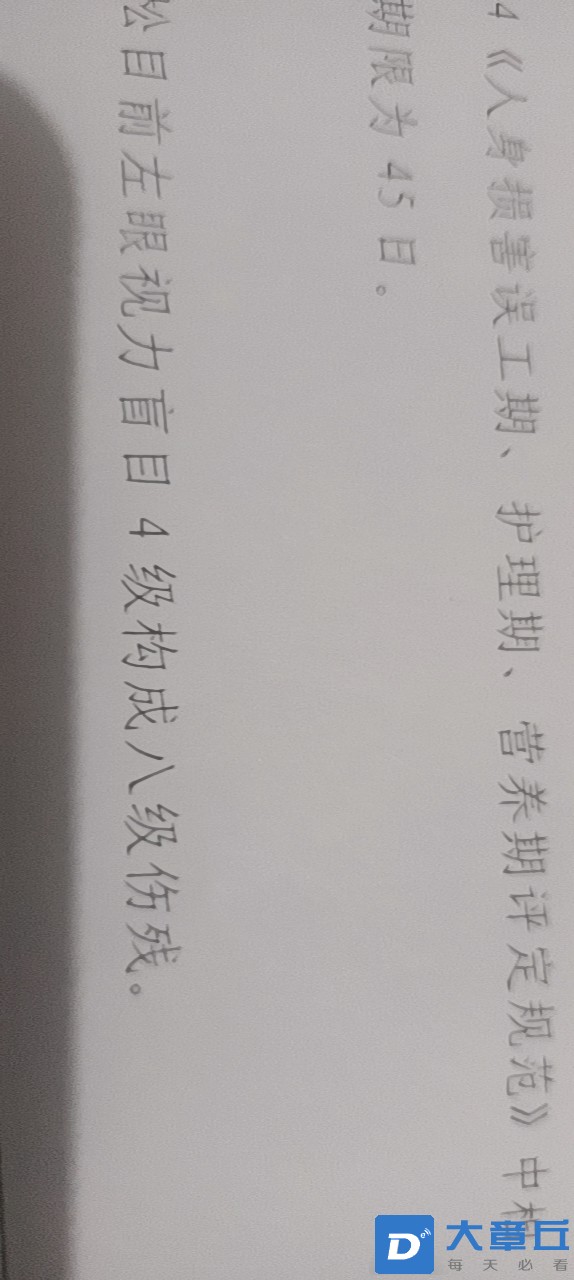 4《人身损害误工期、护理期、营养期评定规范》中
期限为 45 日。
目前左眼视力盲目 4 级构成八级伤残。
大章丘
每天必看